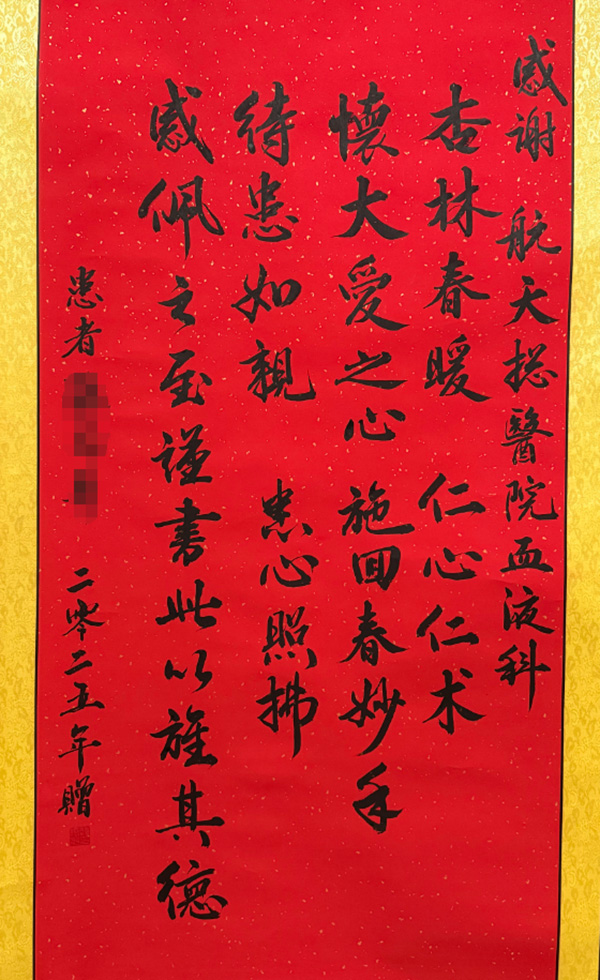 感谢 航天總醫院血液科
杏林春暖 仁心仁术
懷大愛之心 施回春妙手
待患如親 悉心照拂
感佩之至谨書此以旌其德
患者 二零二五年贈